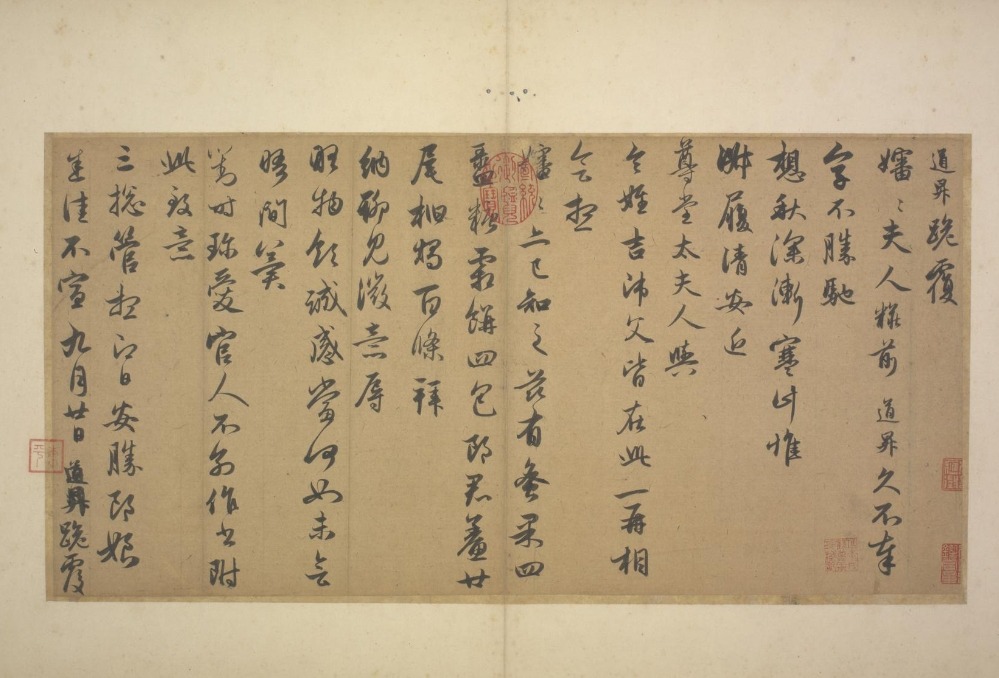 道昇跪覆
嬸〻夫人粧前 道昇久不奉
字不勝馳
想秋深漸寒計惟
淑履清安近
尊堂太夫人與
令姪吉師父皆在此一再相
會想
嬸〻亦已知之茲有蜜果四
盝糖霜餅四包郎君鯗廿
尾桕燭百條拜
納聊見微意辱
略物領誠感當何如未會
晤間冀
對時珍愛官人不別作書附
此致意
三總管想即日安勝郎娘
悉佳不宣 九月廿日 道昇跪覆